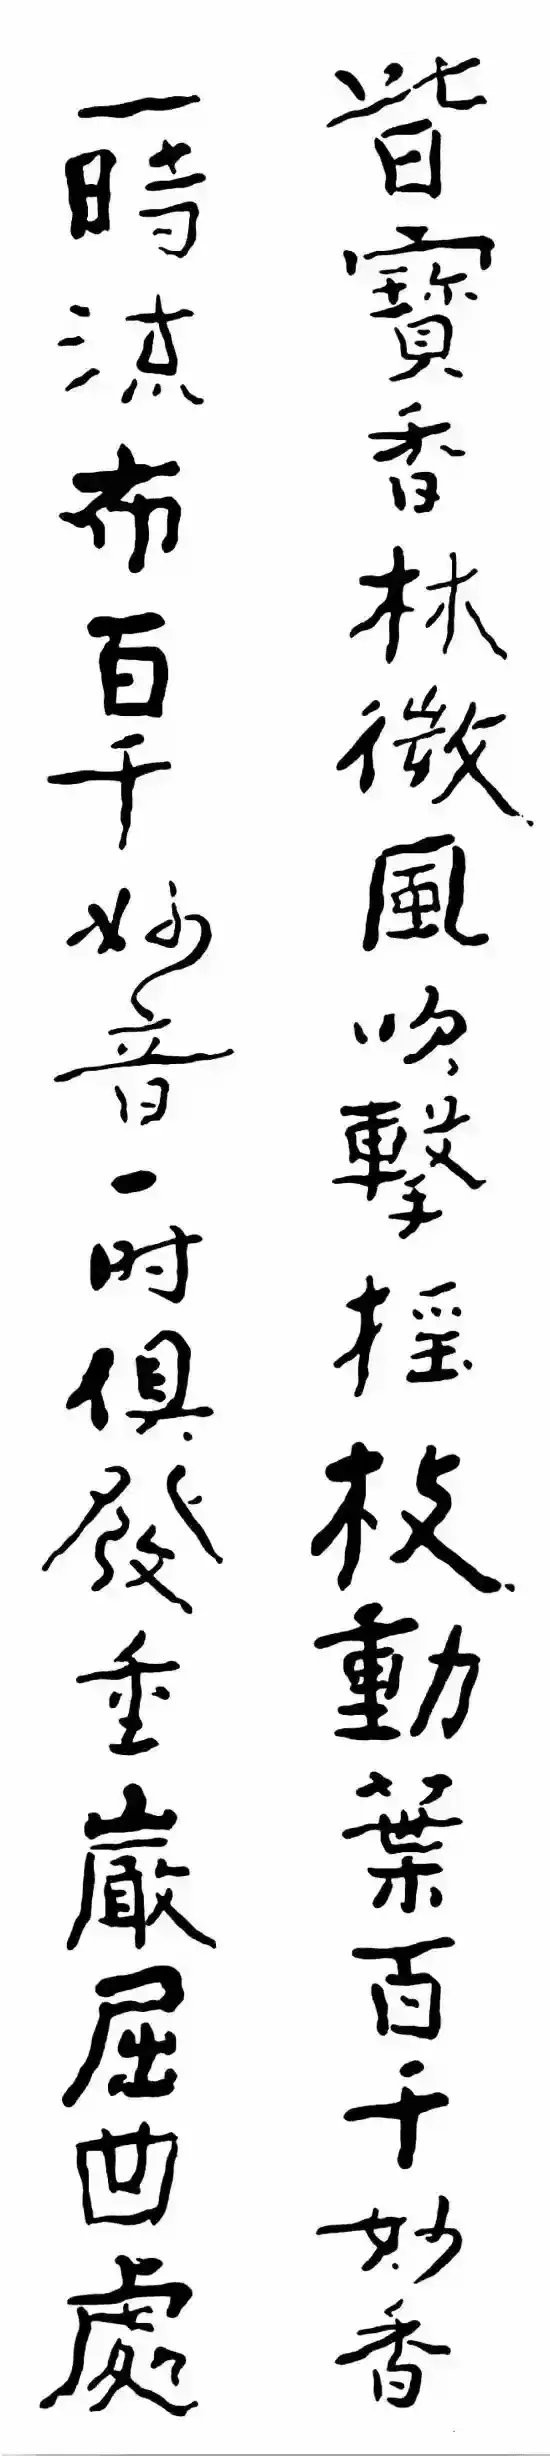 皆寶香林微風吹擊摇枝動葉百千妙香
一時流布百千妙音一时俱發重巖屈曲處